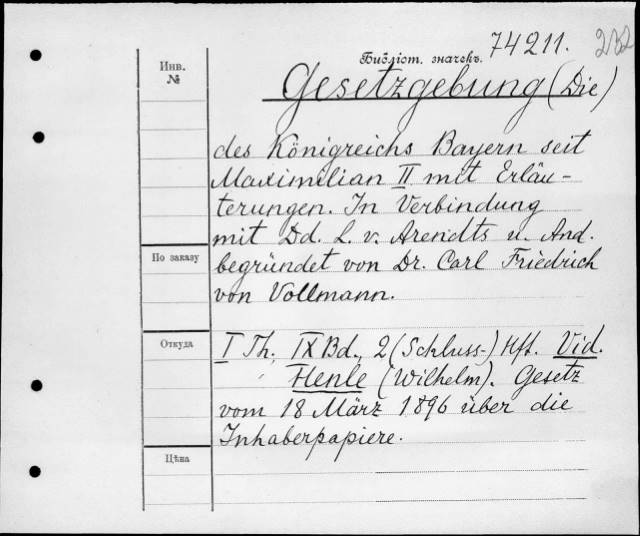 74211. 232
Инв. №
Библіот. значекъ.
Gesetzgebung (Die)
des Königreichs Bayern seit
Maximilian II mit Erläu-
terungen. In Verbindung
mit Dd. L. v. Arendts u. And.
По заказу
begründet von Dr. Carl Friedrich
von Vollmann.
Откуда
I Th., IX Bd., 2 (Schluss-) Hft. Vid.
Henle (Wilhelm). Gesetz
vom 18 März 1896 über die
Inhaberpapiere.
Цѣна